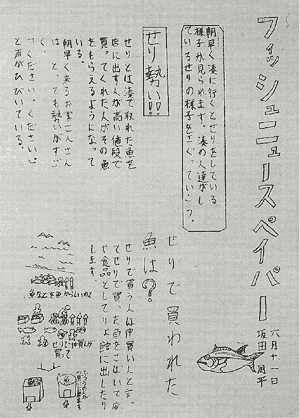 フィッシュニュースペイパー
六月十一日
坂田周平
朝早く湊に行くとせりをしている
様子が見られます。湊の人達がし
ているせりの様子をさぐっていこう。
せり勢い!!
せりとは湊で取れた魚を
店に出す人が高い値段で
買ってくれた人がその魚
をもらえるようになって
いる。
朝早く来るお客さんさん
は、とても勢いがすご
く、ください、くださいと
と声がひびいている。
せりで買われた
魚は?
せりで買う人は仲買い人と言っ
てせりで買った魚をさばいて店
や食品としてりょう館に出したり
します。